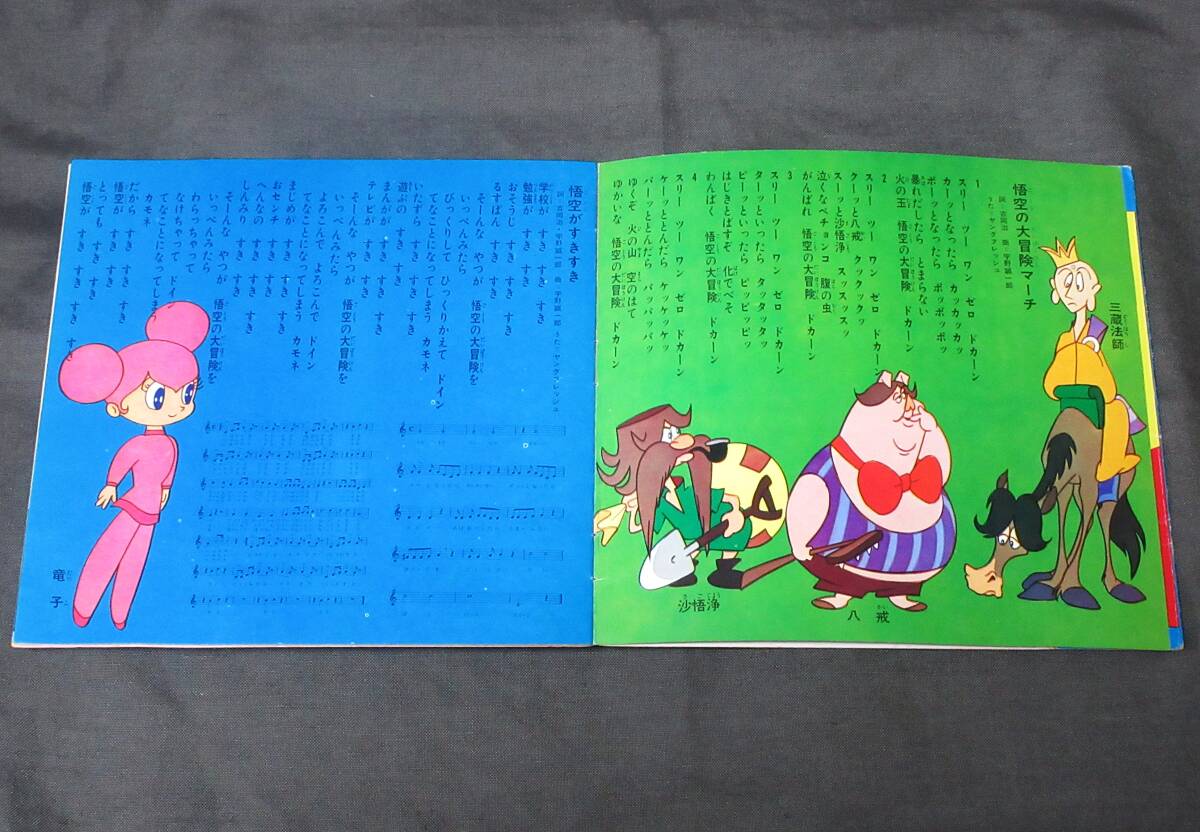 悟空の大冒険マーチ
詞：吉岡治　曲：宇野誠一郎
うた：ヤング・フレッシュ
1
スリー　ツー　ワン　ゼロ　ドカーン
カーッとなったら　カッカッカッ
ポーッとなったら　ポッポッポッ
暴れだしたら　とまらない
火の玉　悟空の大冒険　ドカーン
2
スリー　ツー　ワン　ゼロ　ドカーン
クーッと八戒　クックックッ
スーッと沙悟浄　スッスッスッ
泣くなペチョンコ　腹の虫
がんばれ　悟空の大冒険　ドカーン
3
スリー　ツー　ワン　ゼロ　ドカーン
ターッといったら　タッタッタッ
ピーッといったら　ピッピッピッ
はじきとばすぞ　化でべそ
わんぱく　悟空の大冒険　ドカーン
4
スリー　ツー　ワン　ゼロ　ドカーン
ケーッととんだら　ケッケッケッ
パーッととんだら　パッパッパッ
ゆくぞ　火の山　空のはて
ゆかいな　悟空の大冒険　ドカーン
三蔵法師
八戒
沙悟浄
悟空がすきすき
詞：吉岡治・宇野誠一郎　曲：宇野誠一郎　うた：ヤング・フレッシュ
学校が　すき　すき　すき
勉強が　すき　すき　すき
おそうじ　すき　すき　すき
るすばん　すき　すき　すき
そーんな　やつが　悟空の大冒険を
いっぺんみたら
びっくりして　ひっくりかえて　ドイン
てなことになってしまう　カモネ
いたずら　すき　すき　すき
遊ぶの　すき　すき　すき
まんがが　すき　すき　すき
テレビが　すき　すき　すき
そーんな　やつが　悟空の大冒険を
いっぺんみたら
よろこんで　よろこんで　ドイン
てなことになってしまう　カモネ
まじめが　すき　すき　すき
おセンチ　すき　すき　すき
へんなの　すき　すき　すき
しんみり　すき　すき　すき
そーんな　やつが　悟空の大冒険を
いっぺんみたら
わらっちゃって
なけちゃって　ドイン
てなことになってしまう
カモネ
だから　すき　すき　すき
悟空が　すき　すき　すき
とっても　すき　すき　すき
悟空が　すき　すき　すき
竜子